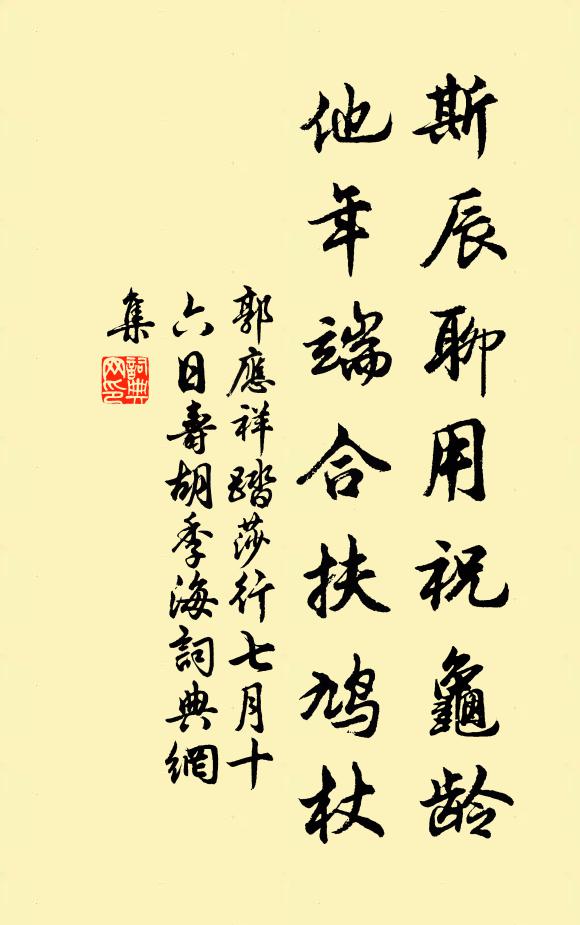 斯辰聊用祝龜龄
他年端合扶鸠杖
郭應祥踏莎行七月十
六日壽胡季海詞典網
集
詞典
网印